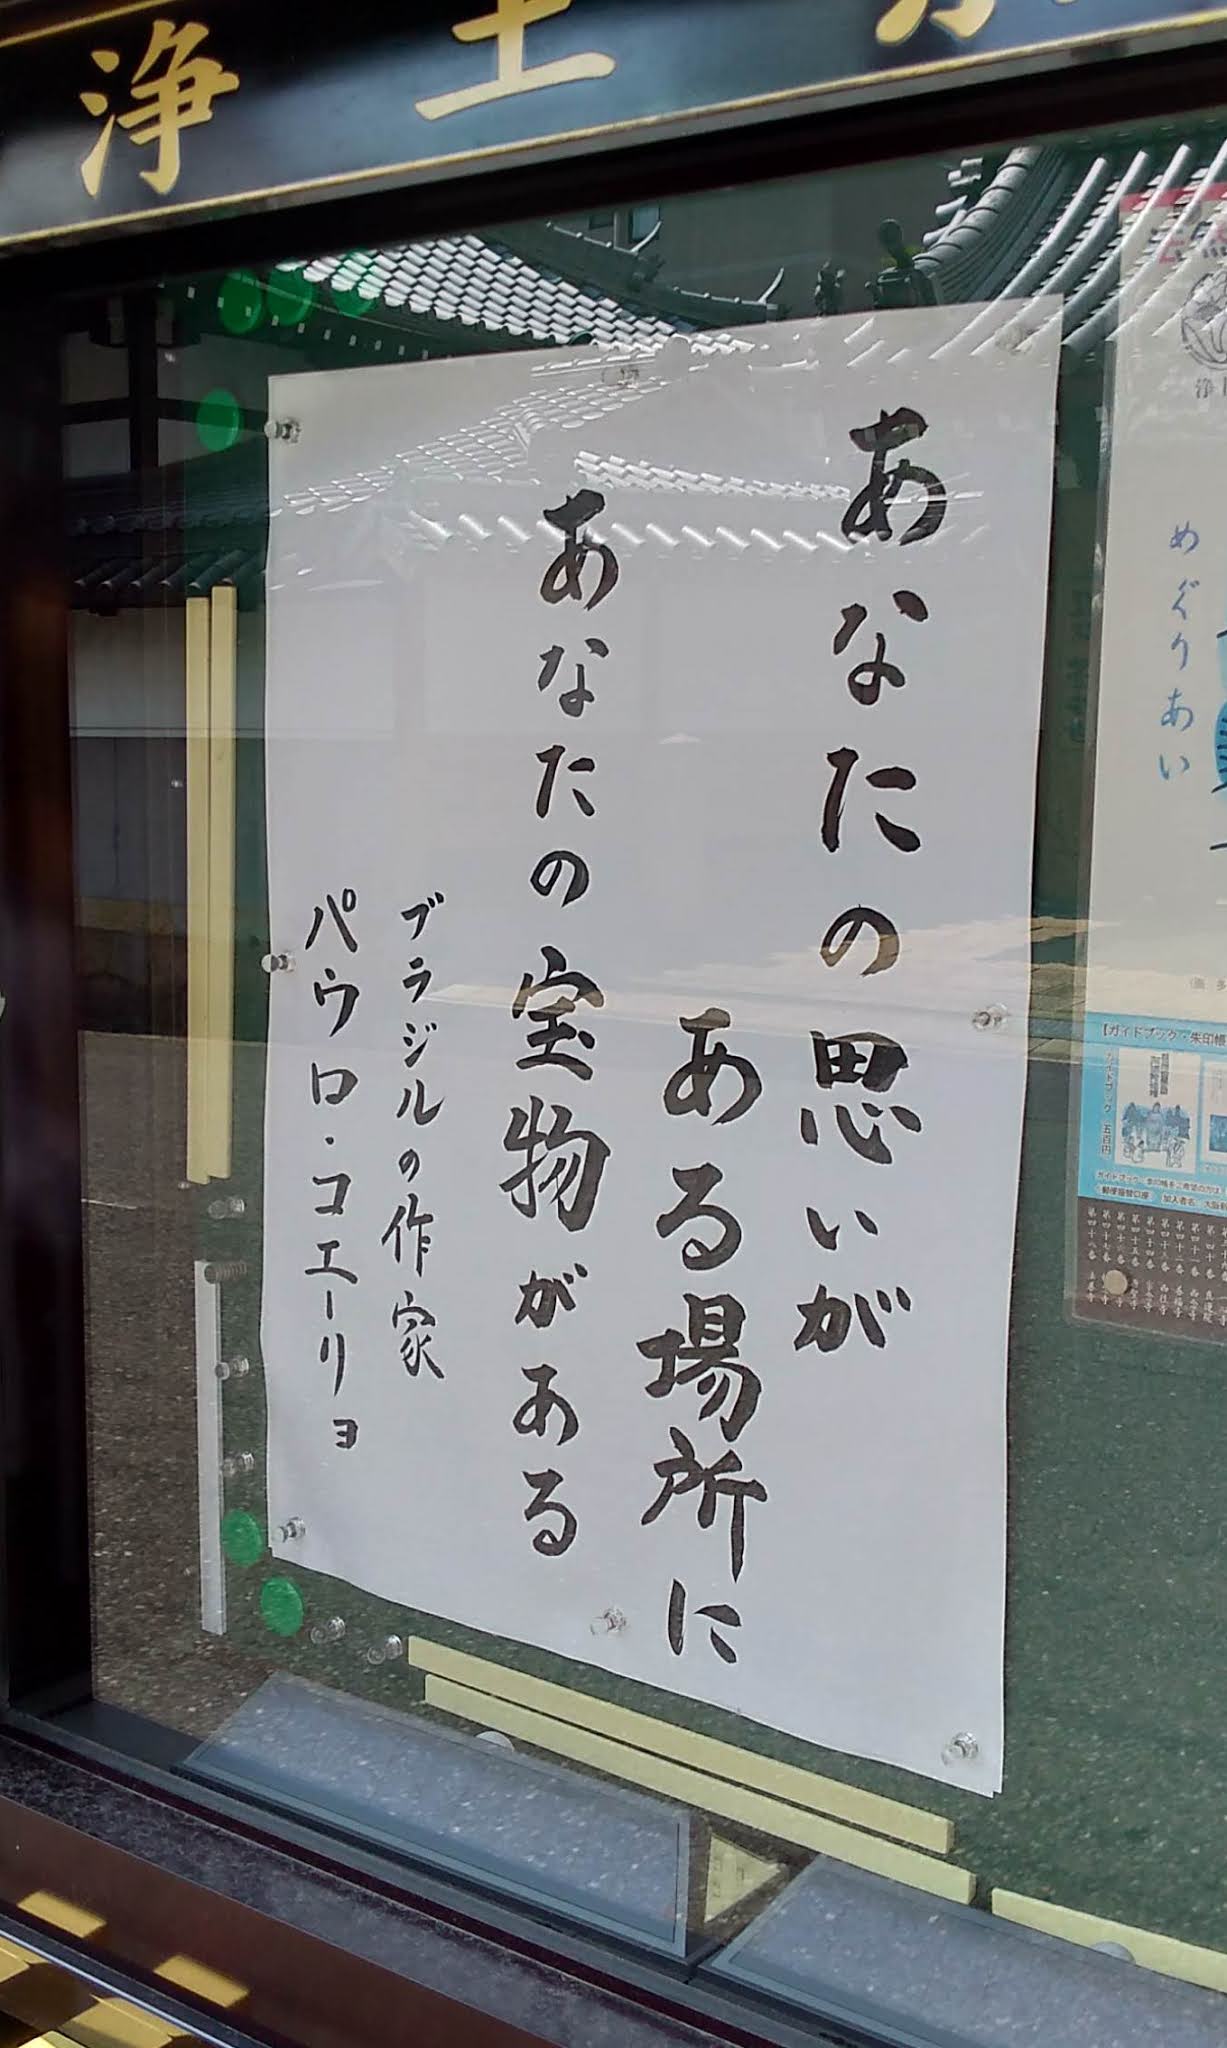 浄土宗
あなたの思いが
ある場所に
あなたの宝物がある
ブラジルの作家
パウロ・コエーリョ
めぐりあい
【ガイドブック・朱印帳
ガイドブック 五百円